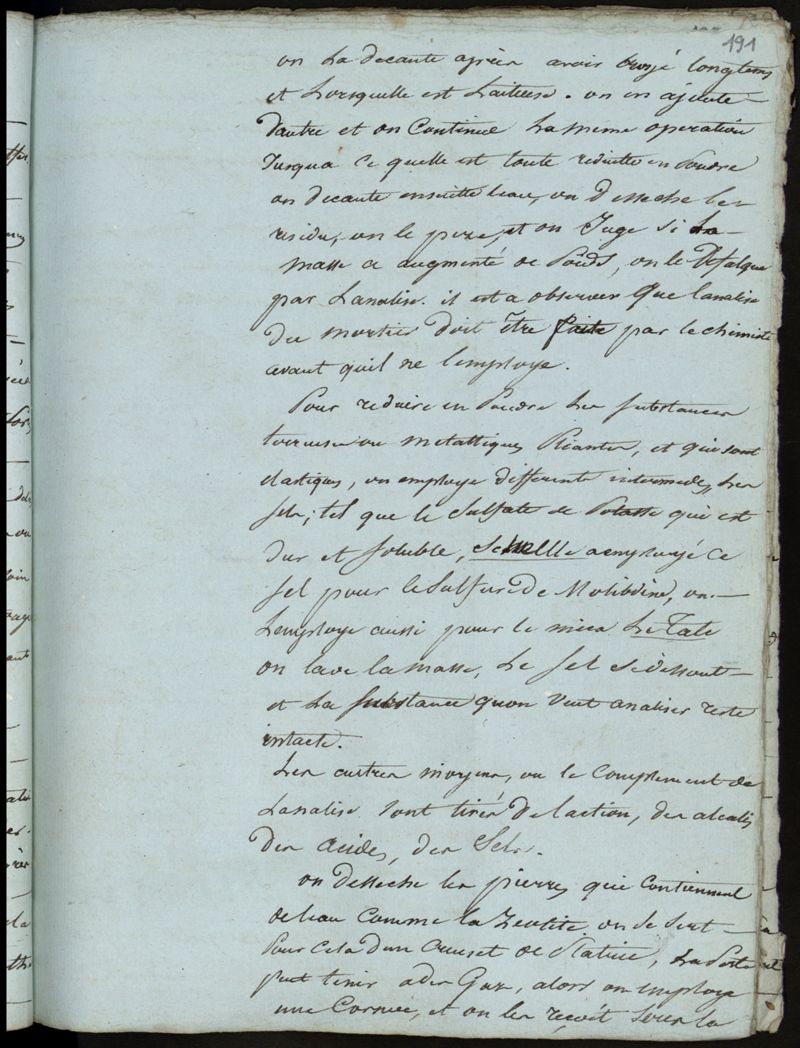 191
on la decante après avoir broyé longtems
et Lorsquelle est Laiteuse. on en ajoute
d'autre et on Continue La meme operation
Jusqua ce quelle est toute reduitte en Poudre
on decante ensuitte leau, on desseche le
residu, on le peze, et on Juge si La
masse a augmenté de Poids, on le defalque
par Lanalise. il est a observer Que lanalise
du mortier doit être faite par le chimiste
avant quil ne l'employe.
Pour reduire en Poudre Les substances
terreuses ou metalliques Pliantes, et qui sont
elastiques, on employe differents intermedes, Les
sels; tel que le Sulfate de Potasse qui est
dur et soluble, Schelle a employé ce
sel pour le Sulfure de Molibdène, on
Lemploye aussi pour le mica Le Talc
on lave la masse, Le sel se dissout
et La substance quon veut analiser reste
intacte.
Les autres moyens, ou le Complement de
Lanalise sont tirés de laction, des alcalis
des acides, des Sels.
on desseche les pierres qui Contiennent
de leau comme la Zeolite, on se sert
Pour cela d'un creuset de Platine, La Perte
peut tenir a des Gaz, alors on employe
une Cornue, et on les reçoit sous la